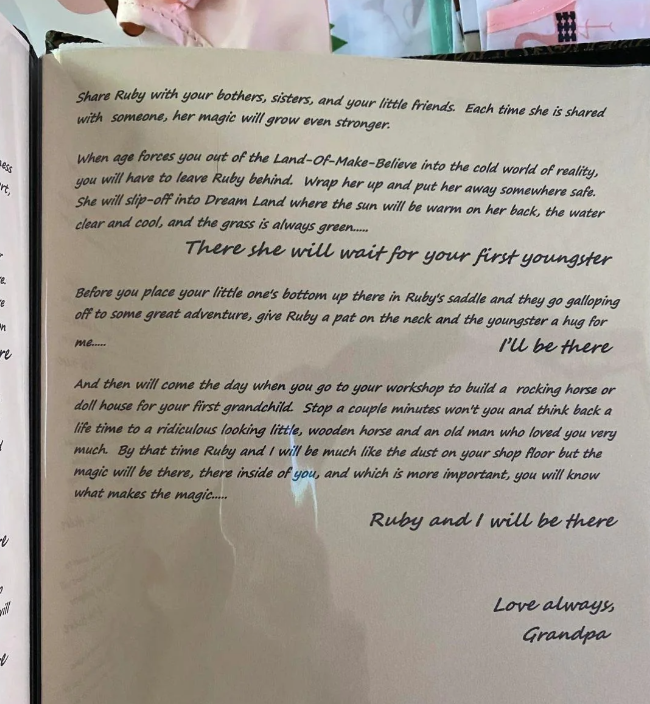 Share Ruby with your bothers, sisters, and your little friends. Each time she is shared
with someone, her magic will grow even stronger.
When age forces you out of the Land-Of-Make-Believe into the cold world of reality,
you will have to leave Ruby behind. Wrap her up and put her away somewhere safe.
She will slip-off into Dream Land where the sun will be warm on her back, the water
clear and cool, and the grass is always green.....
There she will wait for your first youngster
Before you place your little one's bottom up there in Ruby's saddle and they go galloping
off to some great adventure, give Ruby a pat on the neck and the youngster a hug for
me..... I'll be there
And then will come the day when you go to your workshop to build a rocking horse or
doll house for your first grandchild. Stop a couple minutes won't you and think back a
life time to a ridiculous looking little, wooden horse and an old man who loved you very
much. By that time Ruby and I will be much like the dust on your shop floor but the
magic will be there, there inside of you, and which is more important, you will know
what makes the magic.....
Ruby and I will be there
Love always,
Grandpa